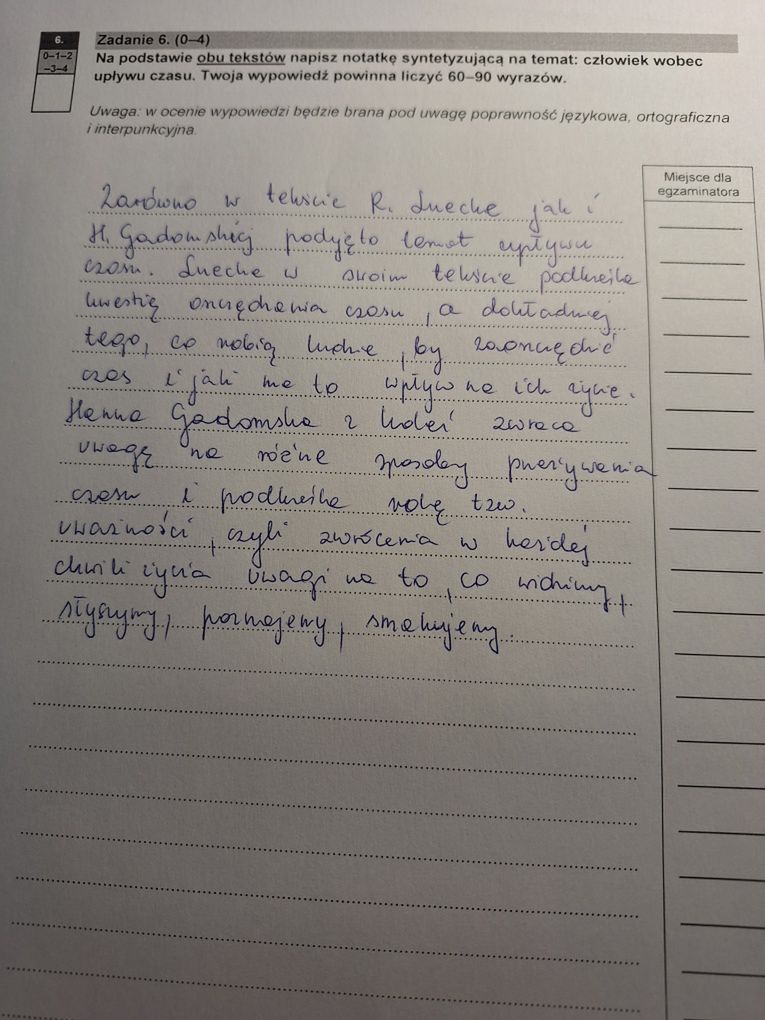 6.
0–1–2
–3–4
Zadanie 6. (0–4)
Na podstawie obu tekstów napisz notatkę syntetyzującą na temat: człowiek wobec
upływu czasu. Twoja wypowiedź powinna liczyć 60–90 wyrazów.
Uwaga: w ocenie wypowiedzi będzie brana pod uwagę poprawność językowa, ortograficzna
i interpunkcyjna.
Miejsce dla
egzaminatora
Zarówno w tekście R. Śnecke jak i
H. Gadomskiej podjęto temat upływu
czasu. Śnecke w swoim tekście podkreśla
kwestię oszczędzania czasu, a dokładniej
tego, co robią ludzie, by zaoszczędzić
czas i jak ma to wpływ na ich życie.
Hanna Gadomska z kolei zwraca
uwagę na różne sposoby przeżywania
czasu i podkreśla rolę tzw.
uważności, czyli zwrócenia w każdej
chwili życia uwagi na to, co widzimy,
słyszymy, poznajemy, smakujemy.